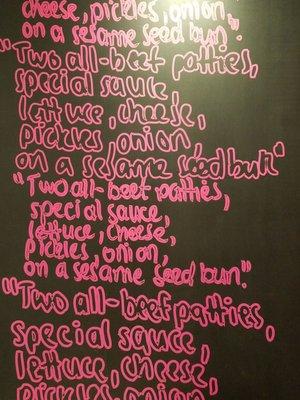 cheese, pickles, onion,
on a sesame seed bun".
"Two all-beef patties,
special sauce,
lettuce, cheese,
pickles, onion
on a sesame seed bun"
"Two all-beef patties,
special sauce,
lettuce, cheese,
pickles, onion,
on a sesame seed bun."
"Two all-beef patties,
special sauce,
lettuce, cheese,
pickles, onion,